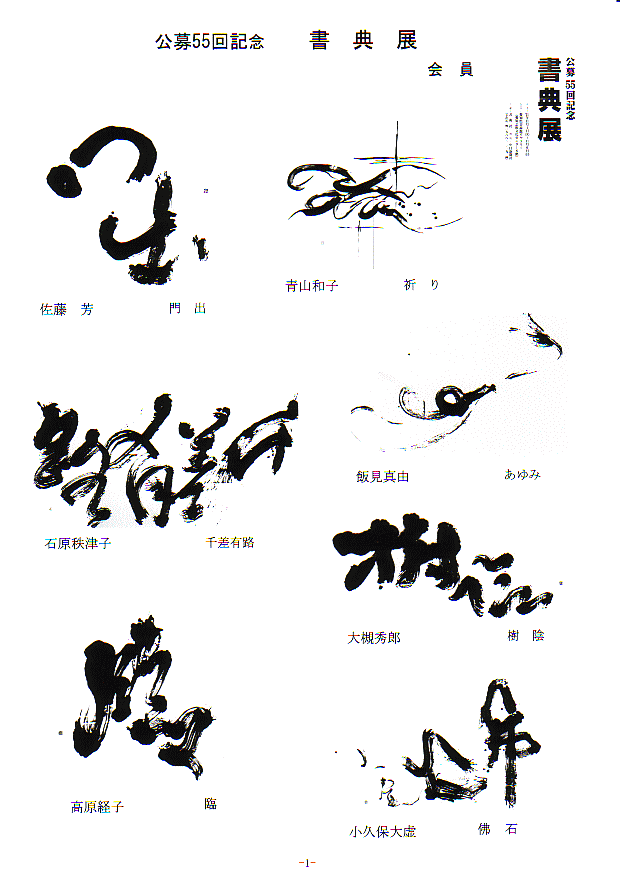 公募55回記念　書 典 展
会 員
公募55回記念
書典展
佐藤 芳　門 出
青山和子　祈 り
飯見真由　あゆみ
石原秩津子　千差有路
大槻秀郎　樹 陰
高原経子　臨
小久保大虚　佛 石
-1-